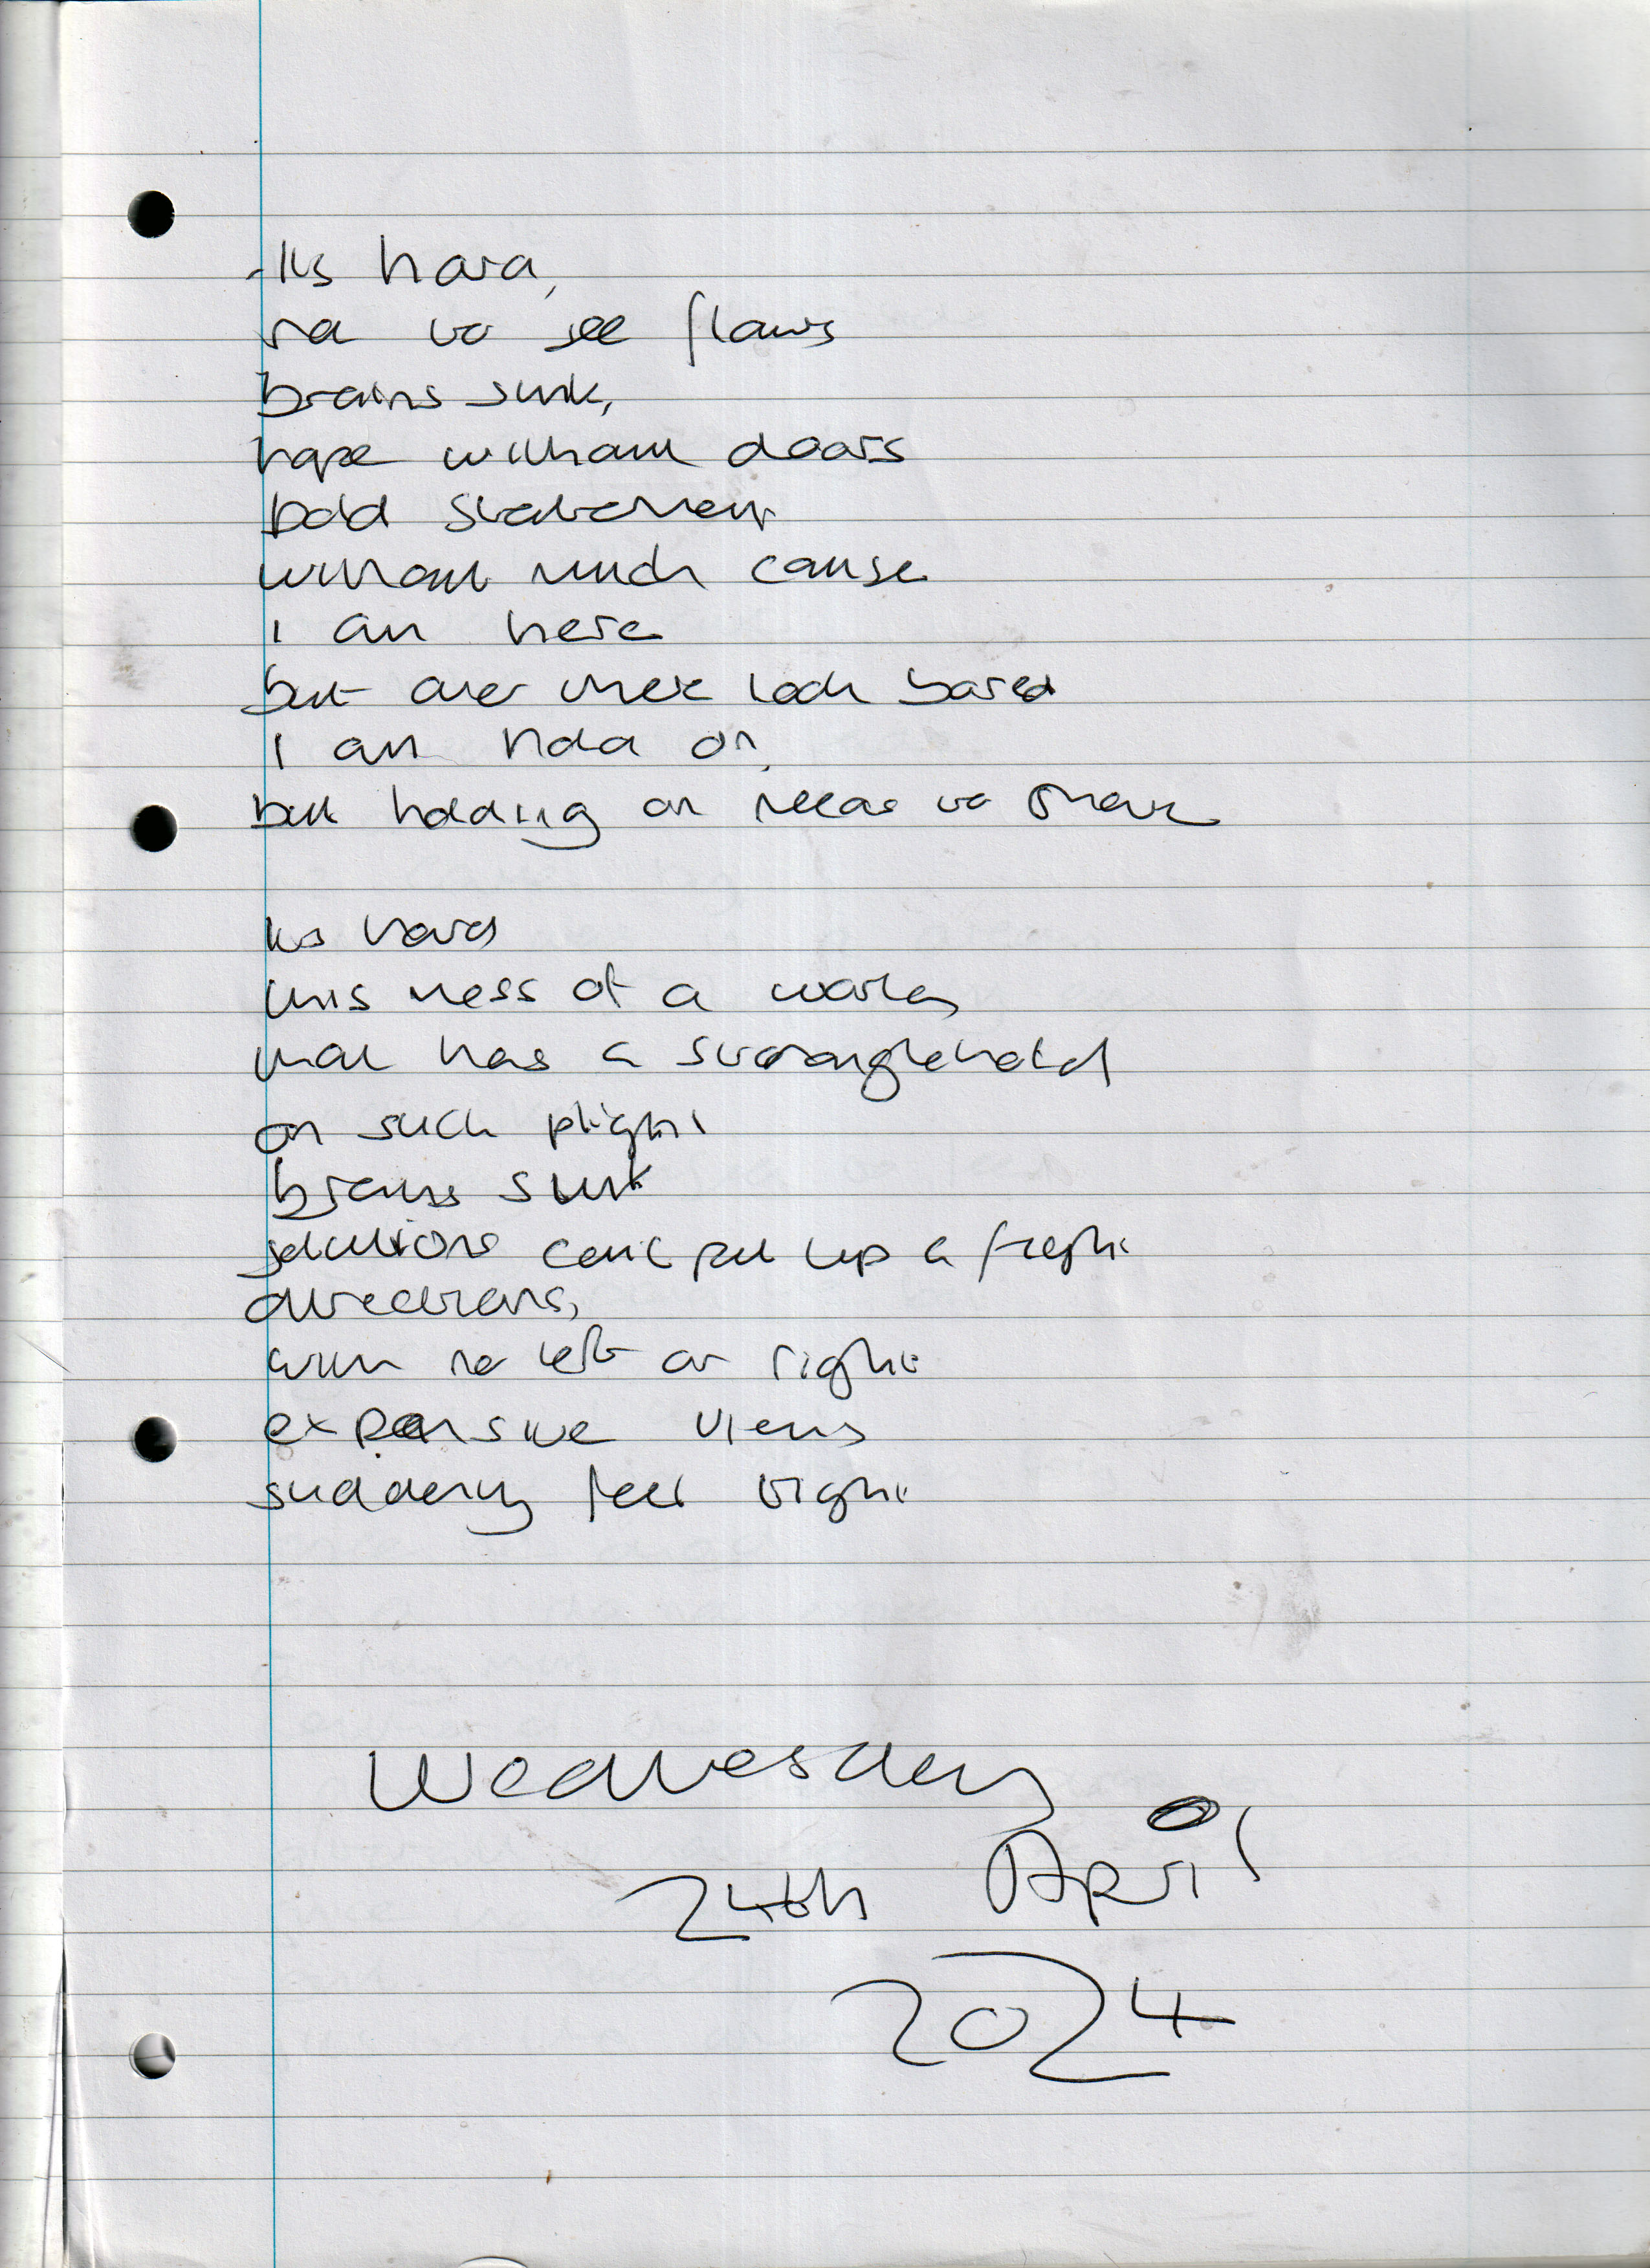 Its hard,
not to see flaws
brains sink,
hope without doors
bold statement
without much cause
I am here
but over there look bored
I am hold on,
but holding on needs to
its hard
this mess of a world,
that has a stranglehold
on such plight
brains sink
solutions cant put up a fight
directions,
with no left or right
expansive views
suddenly feel tight
Wednesday
24th April
2024